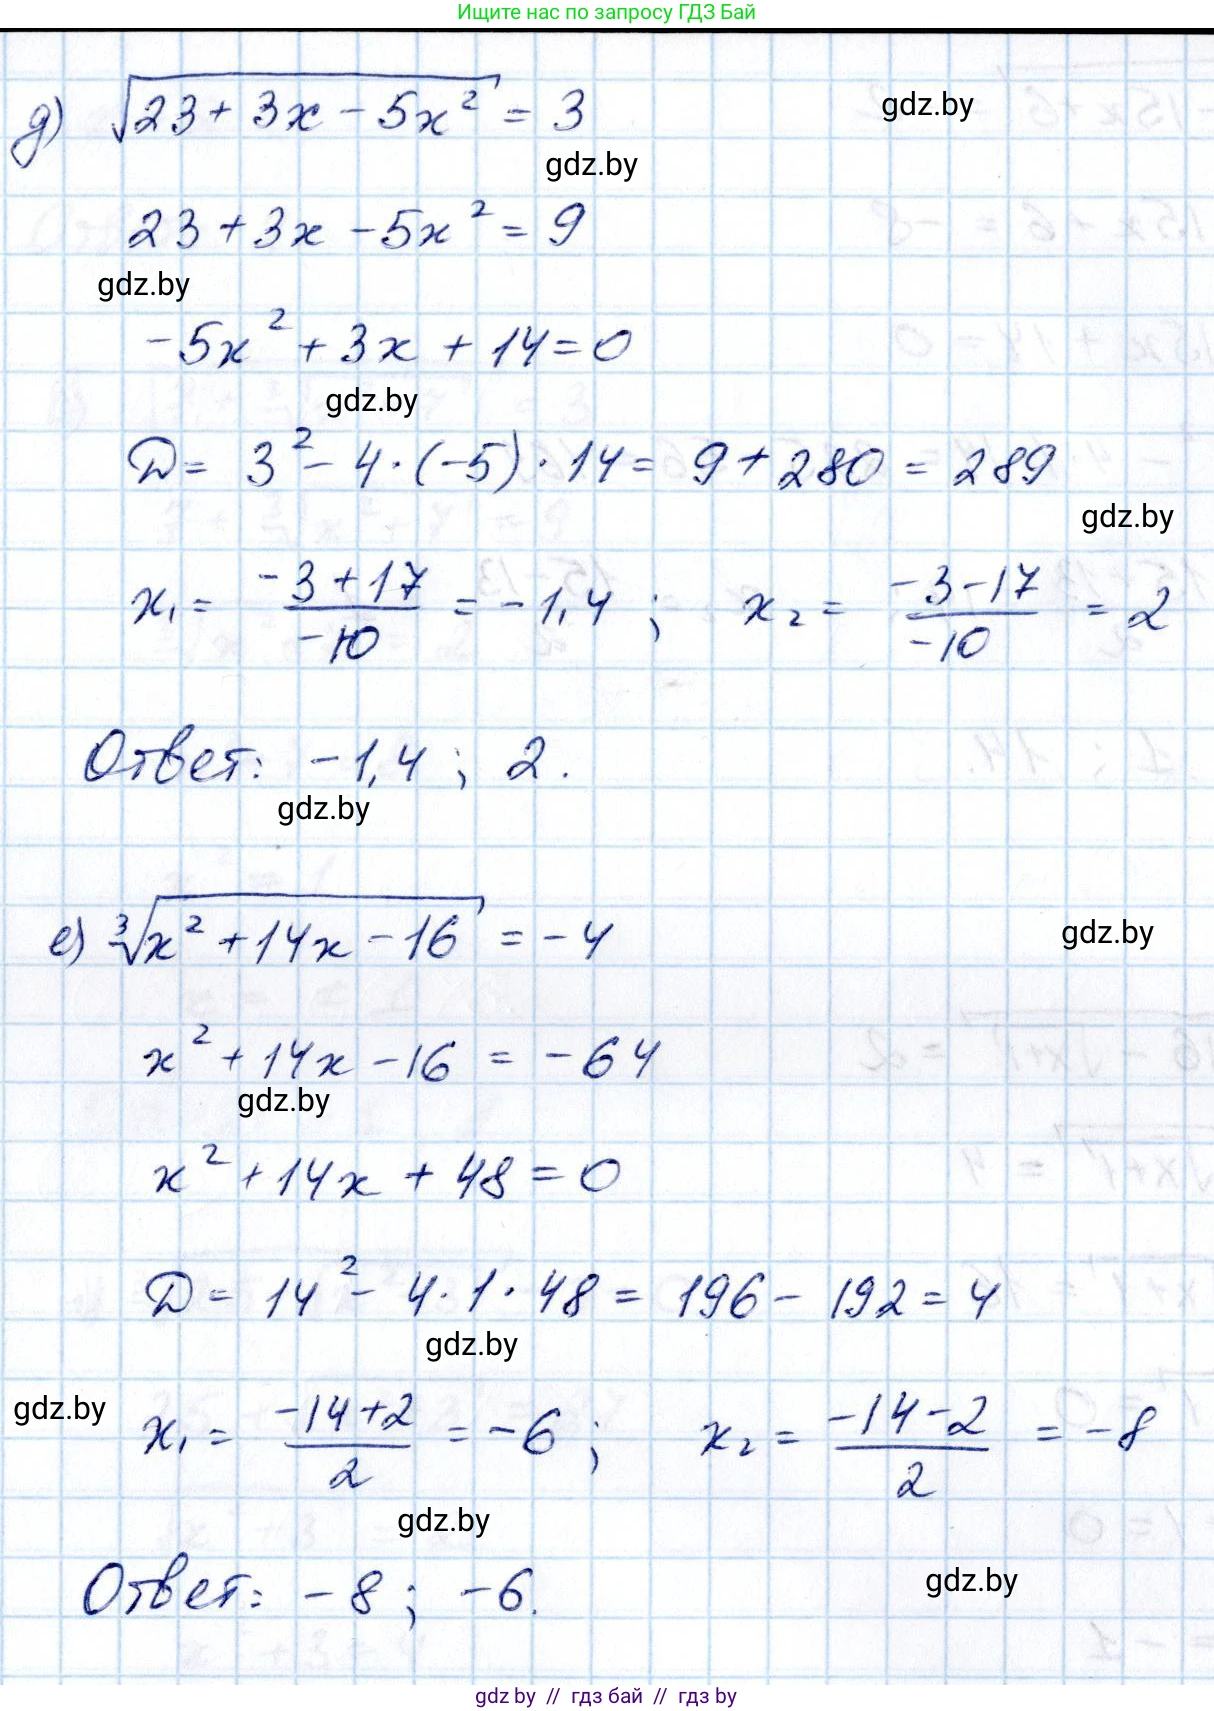 Ищите нас по запросу ГДЗ Бай
д) √(23 + 3x - 5x²) = 3
gdz.by
gdz.by
23 + 3x - 5x² = 9
gdz.by
-5x² + 3x + 14 = 0
gdz.by
D = 3² - 4 · (-5) · 14 = 9 + 280 = 289
gdz.by
x₁ = (-3 + 17)/(-10) = -1,4 ; x₂ = (-3 - 17)/(-10) = 2
Ответ: -1,4 ; 2.
gdz.by
е) ∛(x² + 14x - 16) = -4
gdz.by
x² + 14x - 16 = -64
gdz.by
x² + 14x + 48 = 0
D = 14² - 4 · 1 · 48 = 196 - 192 = 4
gdz.by
gdz.by
x₁ = (-14 + 2)/2 = -6 ; x₂ = (-14 - 2)/2 = -8
gdz.by
Ответ: -8 ; -6.
gdz.by
gdz by // гдз бай // гдз by